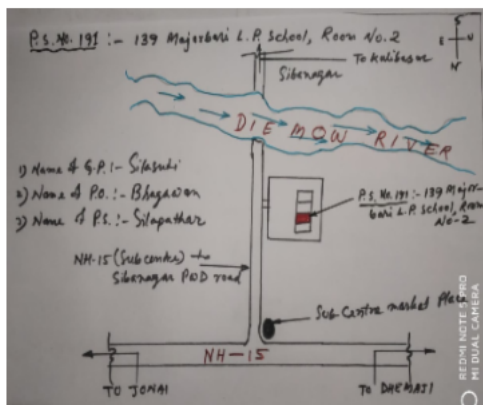 P.S. No. 191 :- 139 Majorbari L.P. School, Room No. 2
S
E
W
N
To Kalibasar
Sibanagar
DIEMOW RIVER
1) Name of G.P. :- Silasuti
2) Name of P.O. :- Bhagawan
3) Name of P.S. :- Silapathar
P.S. No. 191 :- 139 Major-
bari L.P. School, Room
No-2
NH-15 (Subcentre) to
Sibanagar PWD road
Sub Centre market place
NH-15
TO JONAI
TO DHEMAJI
REDMI NOTE 5 PRO
MI DUAL CAMERA